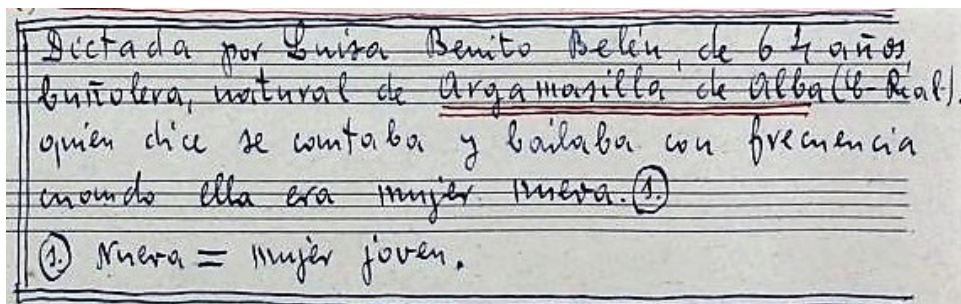 Dictada por Luisa Benito Belén, de 64 años,
buñolera, natural de Argamasilla de Alba (C-Real).
quien dice se cantaba y bailaba con frecuencia
cuando ella era mujer nueva. ①
① Nueva = mujer joven.